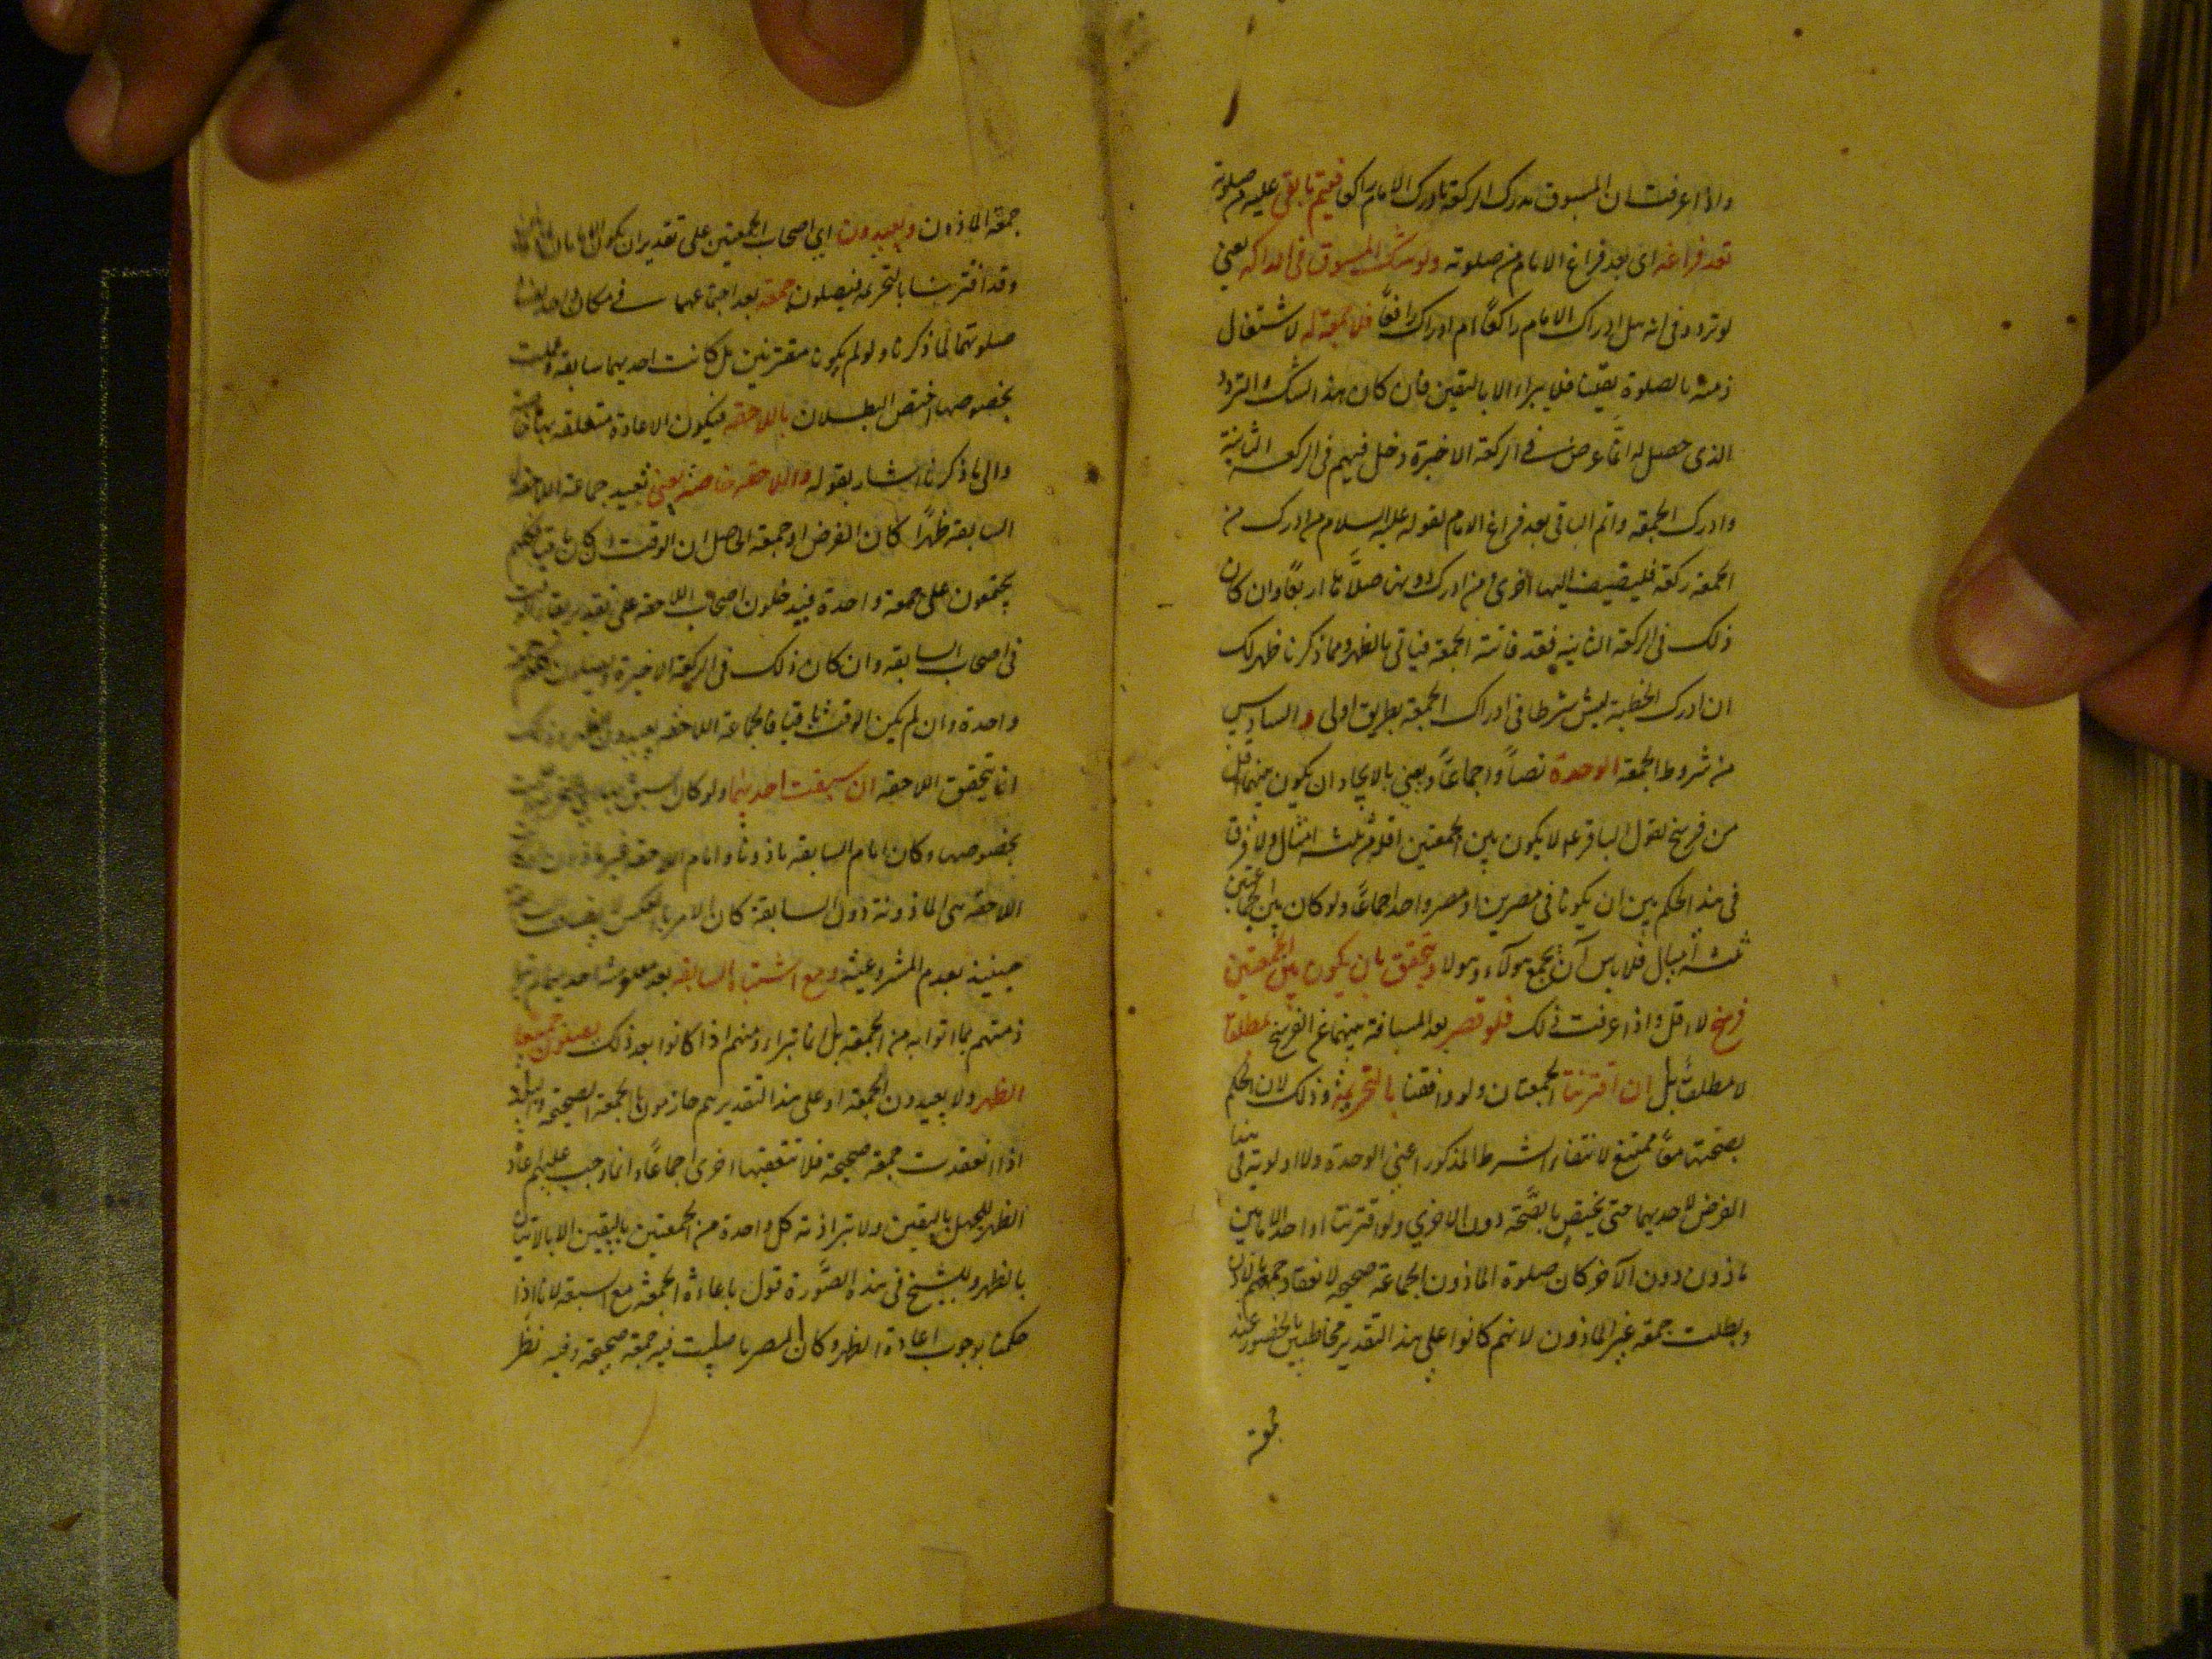 واذا عرفت ان المسبوق مدرك الركعة بادرك الامام راكعا فيتم ما بقى عليه من صلوته
بعد فراغه اى بعد فراغ الامام من صلوته ولو شك المسبوق فى ادراكه يعنى
لو تردد فى انه هل ادراك الامام راكعًا ام ادراك رافعًا فلا جمعة له لاشتغال
ذمته بالصلوة يقينا فلا يبراء الا باليقين فان كان هذا الشك والتردد
الذى حصل له انما عرض فى الركعة الاخيرة دخل فيهم فى الركعة الثانية
وادرك الجمعة واتم الباقى بعد فراغ الامام لقوله عليه السلام من ادرك من
الجمعة ركعة فليضيف اليها اخرى ومن ادرك دونها صلاها اربعًا وان كان
ذلك فى الركعة الثانية فقد فاتته الجمعة فياتى بالظهر ومما ذكرنا ظهر لك
ان ادرك الخطبة ليس شرطا فى ادراك الجمعة بطريق اولى و السادس
من شروط الجمعة الوحدة نصاً واجماعًا ويعنى بالايجاد ان يكون بينهما اقل
من فرسخ لقول الباقر ع لا يكون بين الجمعتين اقل من ثلثة اميال ولا فرق
فى هذا الحكم بين ان يكونا فى مصرين او مصر واحد اجماعًا ولو كان بين الجماعتين
ثلثة اميال فلا باس ان يجمع هولاء وهولا ويتحقق بان يكون بين الجمعتين
فرسخ لا اقل واذا عرفت ذلك فلو قصر بعد المسافة بينهما عن الفرسخ بطلتا
لا مطلقًا بل ان اقترنتا الجمعتان ولو وافقتا بالتحريمة وذلك لان الحكم
بصحتهما معًا ممتنع لانتفاء الشرط المذكور اعنى الوحدة ولا اولوية فى هذا
الفرض لاحديهما حتى يختص بالصحة دون الاخرى ولو اقترنتا او احد الامامين
ماذون دون الآخر كان صلوة الماذون الجماعة صحيحه لانعقاد جمعتهم بالاذن
وبطلت جمعة غير الماذون لانهم كانوا على هذا التقدير مخاطبين بالحضور عند
جمعة
جمعة الماذون ويعيدون اى اصحاب الجمعتين على تقدير ان يكون الامامان
وقد اقترنتا بالتحريمه فيصلون جمعة بعد اجتماعهما فى مكان واحد
صلوتهما لما ذكرنا ولو لم يكون مقترنين بل كانت احديهما سابقة وعلمت
بخصوصها اختص البطلان باللاحقه فيكون الاعادة متعلقه بها خاصة
والى ما ذكرنا اشار بقوله واللاحقه خاصة يعنى تعيد جماعة اللاحقة
السابقه ظهرًا كان الفرض او جمعة الحاصل ان الوقت ان كان باقيا فكلهم
يجتمعون على جمعة واحدة فيدخلون اصحاب اللاحقه على تقدير بقاء الوقت
فى اصحاب السابقه وان كان ذلك فى الركعة الاخيرة ويصلون كلهم جمعة
واحدة وان لم يكن الوقت باقيا فالجماعة اللاحقه يعيدون ظهرا وذلك
انما يتحقق اللاحقه ان سبقت احديهما ولو كان السبق
بخصوصها وكان امام السابقه ماذونا وامام اللاحقه غير ماذون
اللاحقه هى الماذونة دون السابقة كان الامر بالعكس
حينئذ بعدم المشروعيته ومع اشتباه السابقه بعد معلومية احديهما
ذمتهم بما اتوا به من الجمعة بل انما تبراء ذممهم اذا كانوا بعد ذلك يصلون جميعا
الظهر ولا يعيدون الجمعة اذ على هذا التقدير هم جازمون بالجمعة الصحيحة
اذا انعقدت جمعة صحيحة فلا تتعقبها اخرى اجماعًا وانما وجب عليهم اعادة
الظهر للجهل باليقين ولا تبرا ذمة كل واحدة من الجمعتين باليقين الا بالاتيان
بالظهر وللشيخ فى هذه الصورة قول باعادة الجمعة مع السبعة لانا اذا
حكمنا بوجوب اعادة الظهر وكان المصر ما صليت فيه جمعة صحيحة وفيه نظر